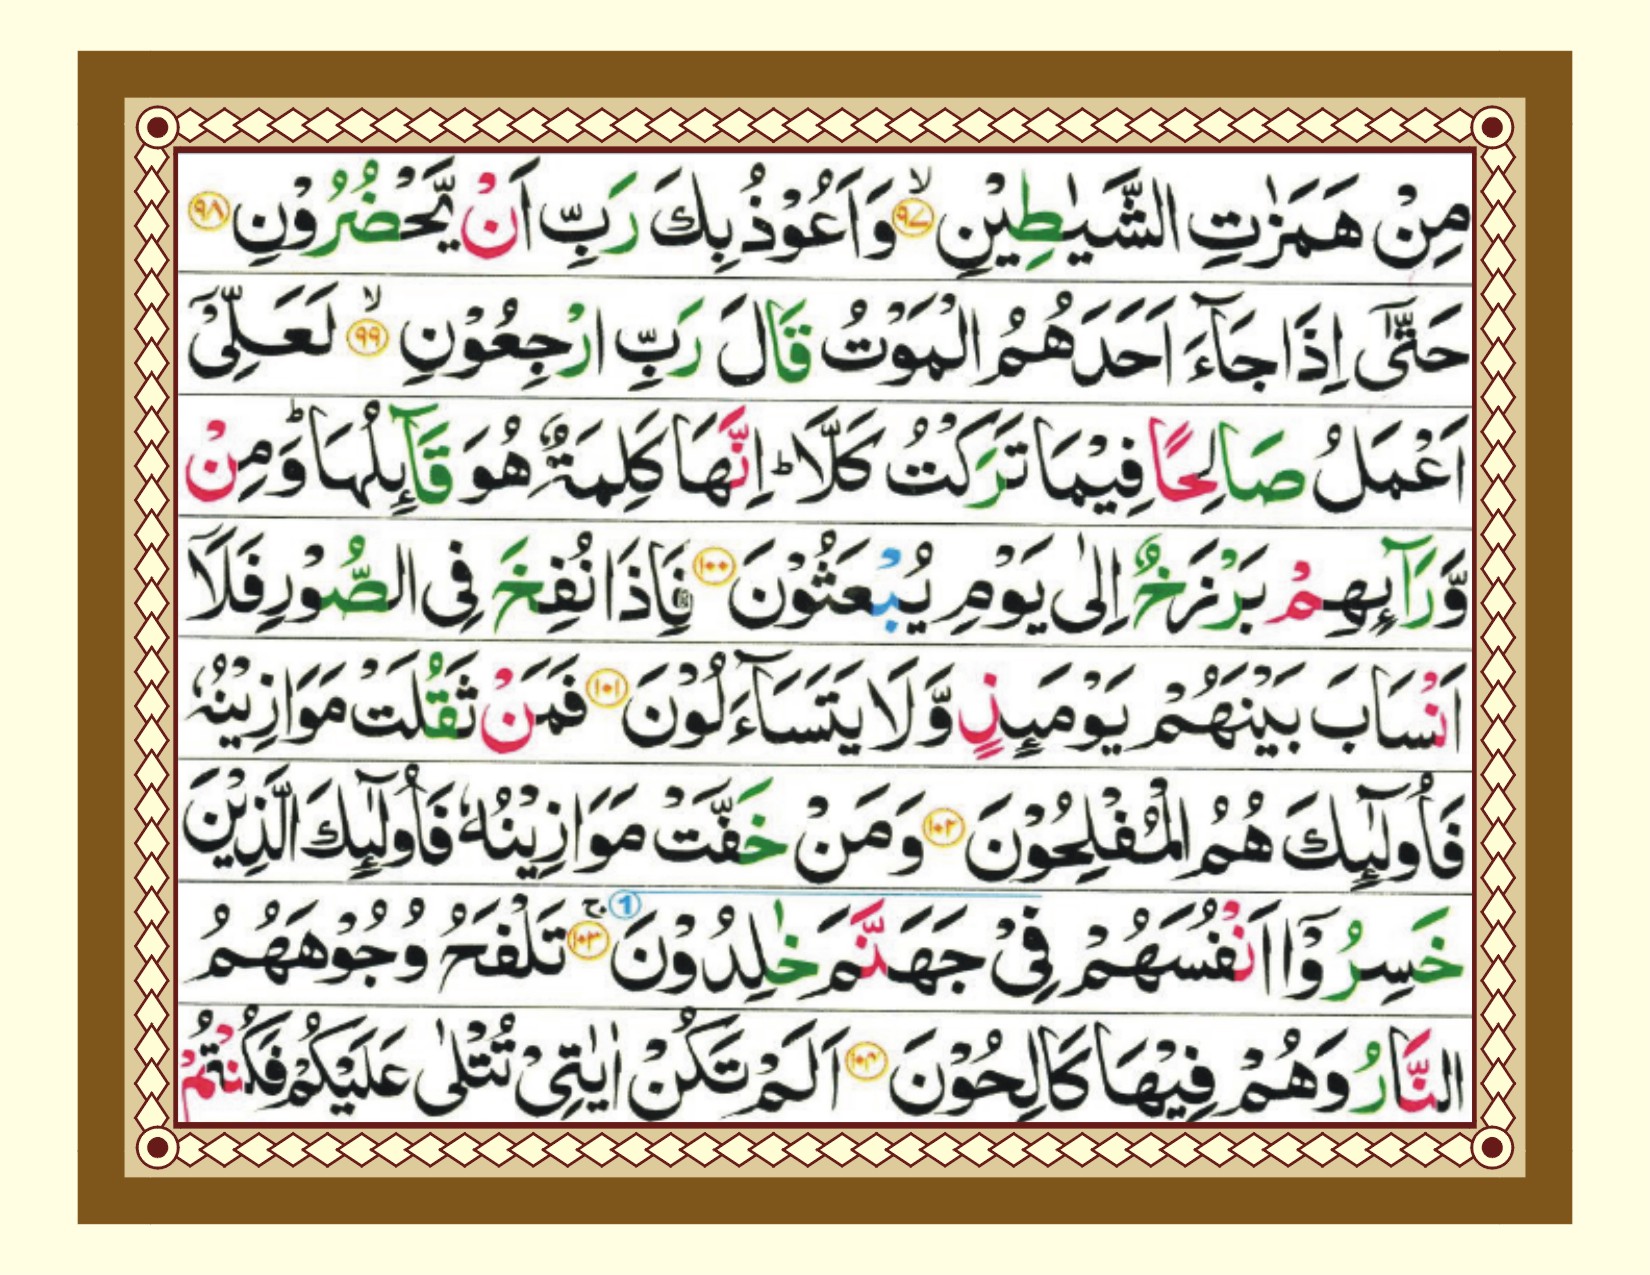 مِنْ هَمَزٰتِ الشَّيٰطِيْنِ ۙ﴿۹۷﴾ وَاَعُوْذُ بِكَ رَبِّ اَنْ يَّحْضُرُوْنِ ﴿۹۸﴾
حَتّٰٓى اِذَا جَآءَ اَحَدَهُمُ الْمَوْتُ قَالَ رَبِّ ارْجِعُوْنِ ۙ﴿۹۹﴾ لَعَلِّىْٓ
اَعْمَلُ صَالِحًا فِيْمَا تَرَكْتُ كَلَّا ؕ اِنَّهَا كَلِمَةٌ هُوَ قَآئِلُهَا ؕ وَمِنْ
وَّرَآئِهِمْ بَرْزَخٌ اِلٰى يَوْمِ يُبْعَثُوْنَ ﴿۱۰۰﴾ فَاِذَا نُفِخَ فِى الصُّوْرِ فَلَاۤ
اَنْسَابَ بَيْنَهُمْ يَوْمَئِذٍ وَّلَا يَتَسَآءَلُوْنَ ﴿۱۰۱﴾ فَمَنْ ثَقُلَتْ مَوَازِيْنُهٗ
فَاُولٰٓئِكَ هُمُ الْمُفْلِحُوْنَ ﴿۱۰۲﴾ وَمَنْ خَفَّتْ مَوَازِيْنُهٗ فَاُولٰٓئِكَ الَّذِيْنَ
خَسِرُوْۤا اَنْفُسَهُمْ فِىْ جَهَنَّمَ خٰلِدُوْنَ ① ۚ﴿۱۰۳﴾ تَلْفَحُ وُجُوْهَهُمُ
النَّارُ وَهُمْ فِيْهَا كَالِحُوْنَ ﴿۱۰۴﴾ اَلَمْ تَكُنْ اٰيٰتِىْ تُتْلٰى عَلَيْكُمْ فَكُنْتُمْ